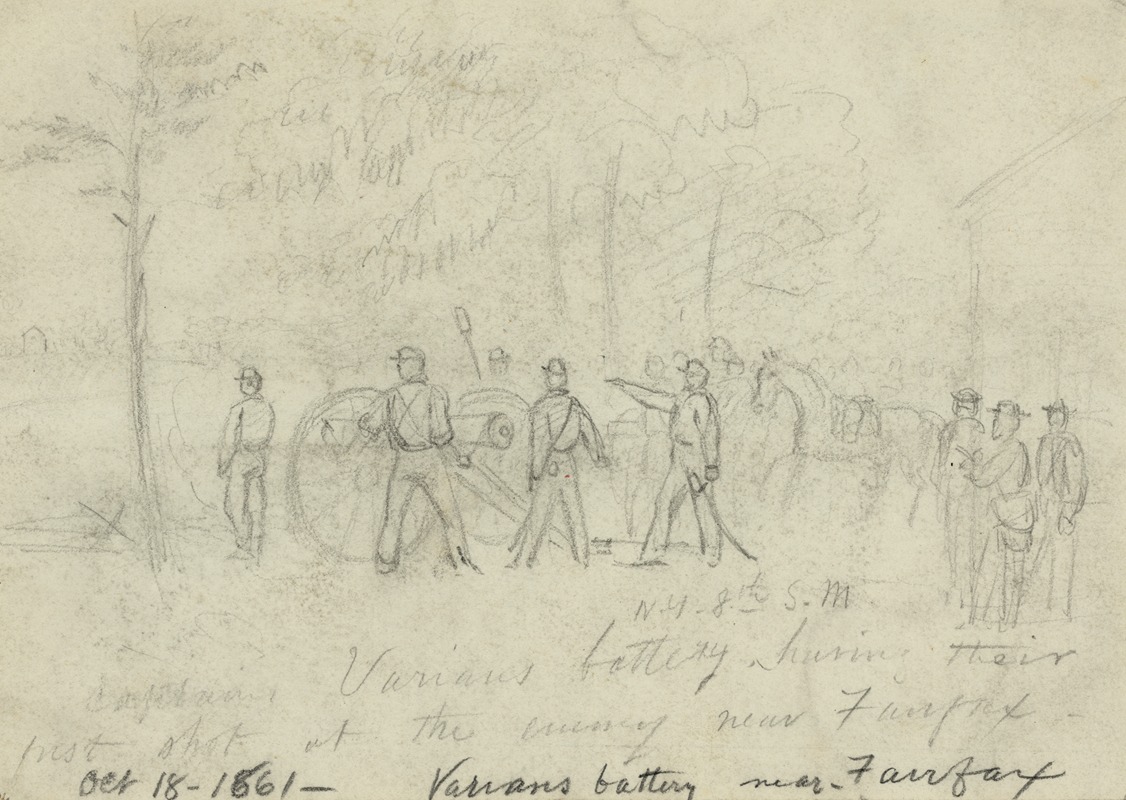 N.Y. 8th S. M
Varians battery, having their
Captain
first shot at the enemy near Fairfax -
Oct 18 - 1861 — Varians battery near Fairfax